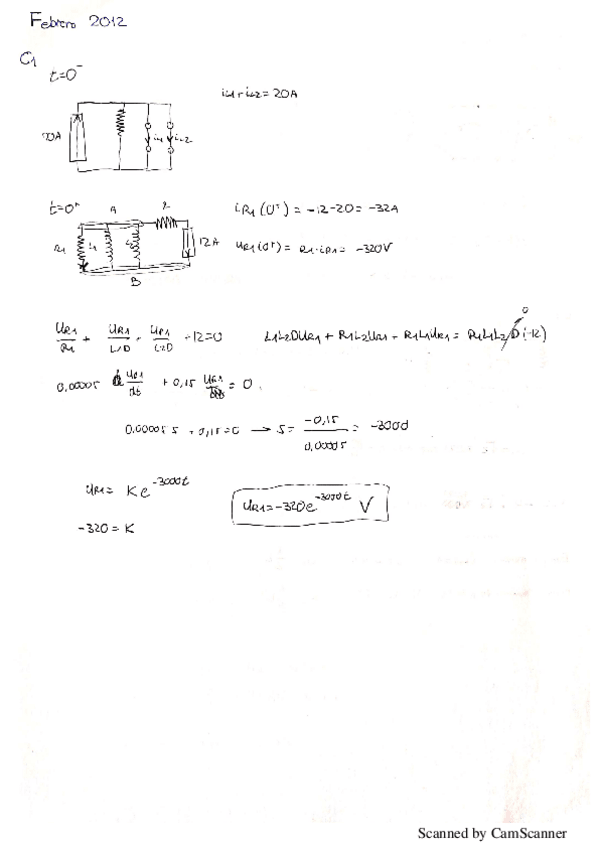 Febrero 2012
C1
t=0⁻
iL1+iL2=20A
20A
iL1
iL2
t=0⁺
A
R
iR1(0⁺) = -12-20= -32A
R1
12A
uR1(0⁺)= R1·iR1= -320V
B
uR1/R1 + uR1/L1D + uR1/L2D + 12=0
L1L2DuR1 + R1L2uR1 + R1L1uR1 = R1L1L2D(-12)
0
0,00005 d uR1/dt + 0,15 uR1 = 0
0,00005 s + 0,15=0 → s= -0,15/0,00005 = -3000
uR1= K e^-3000t
uR1=-320e^-3000t V
-320=K
Scanned by CamScanner